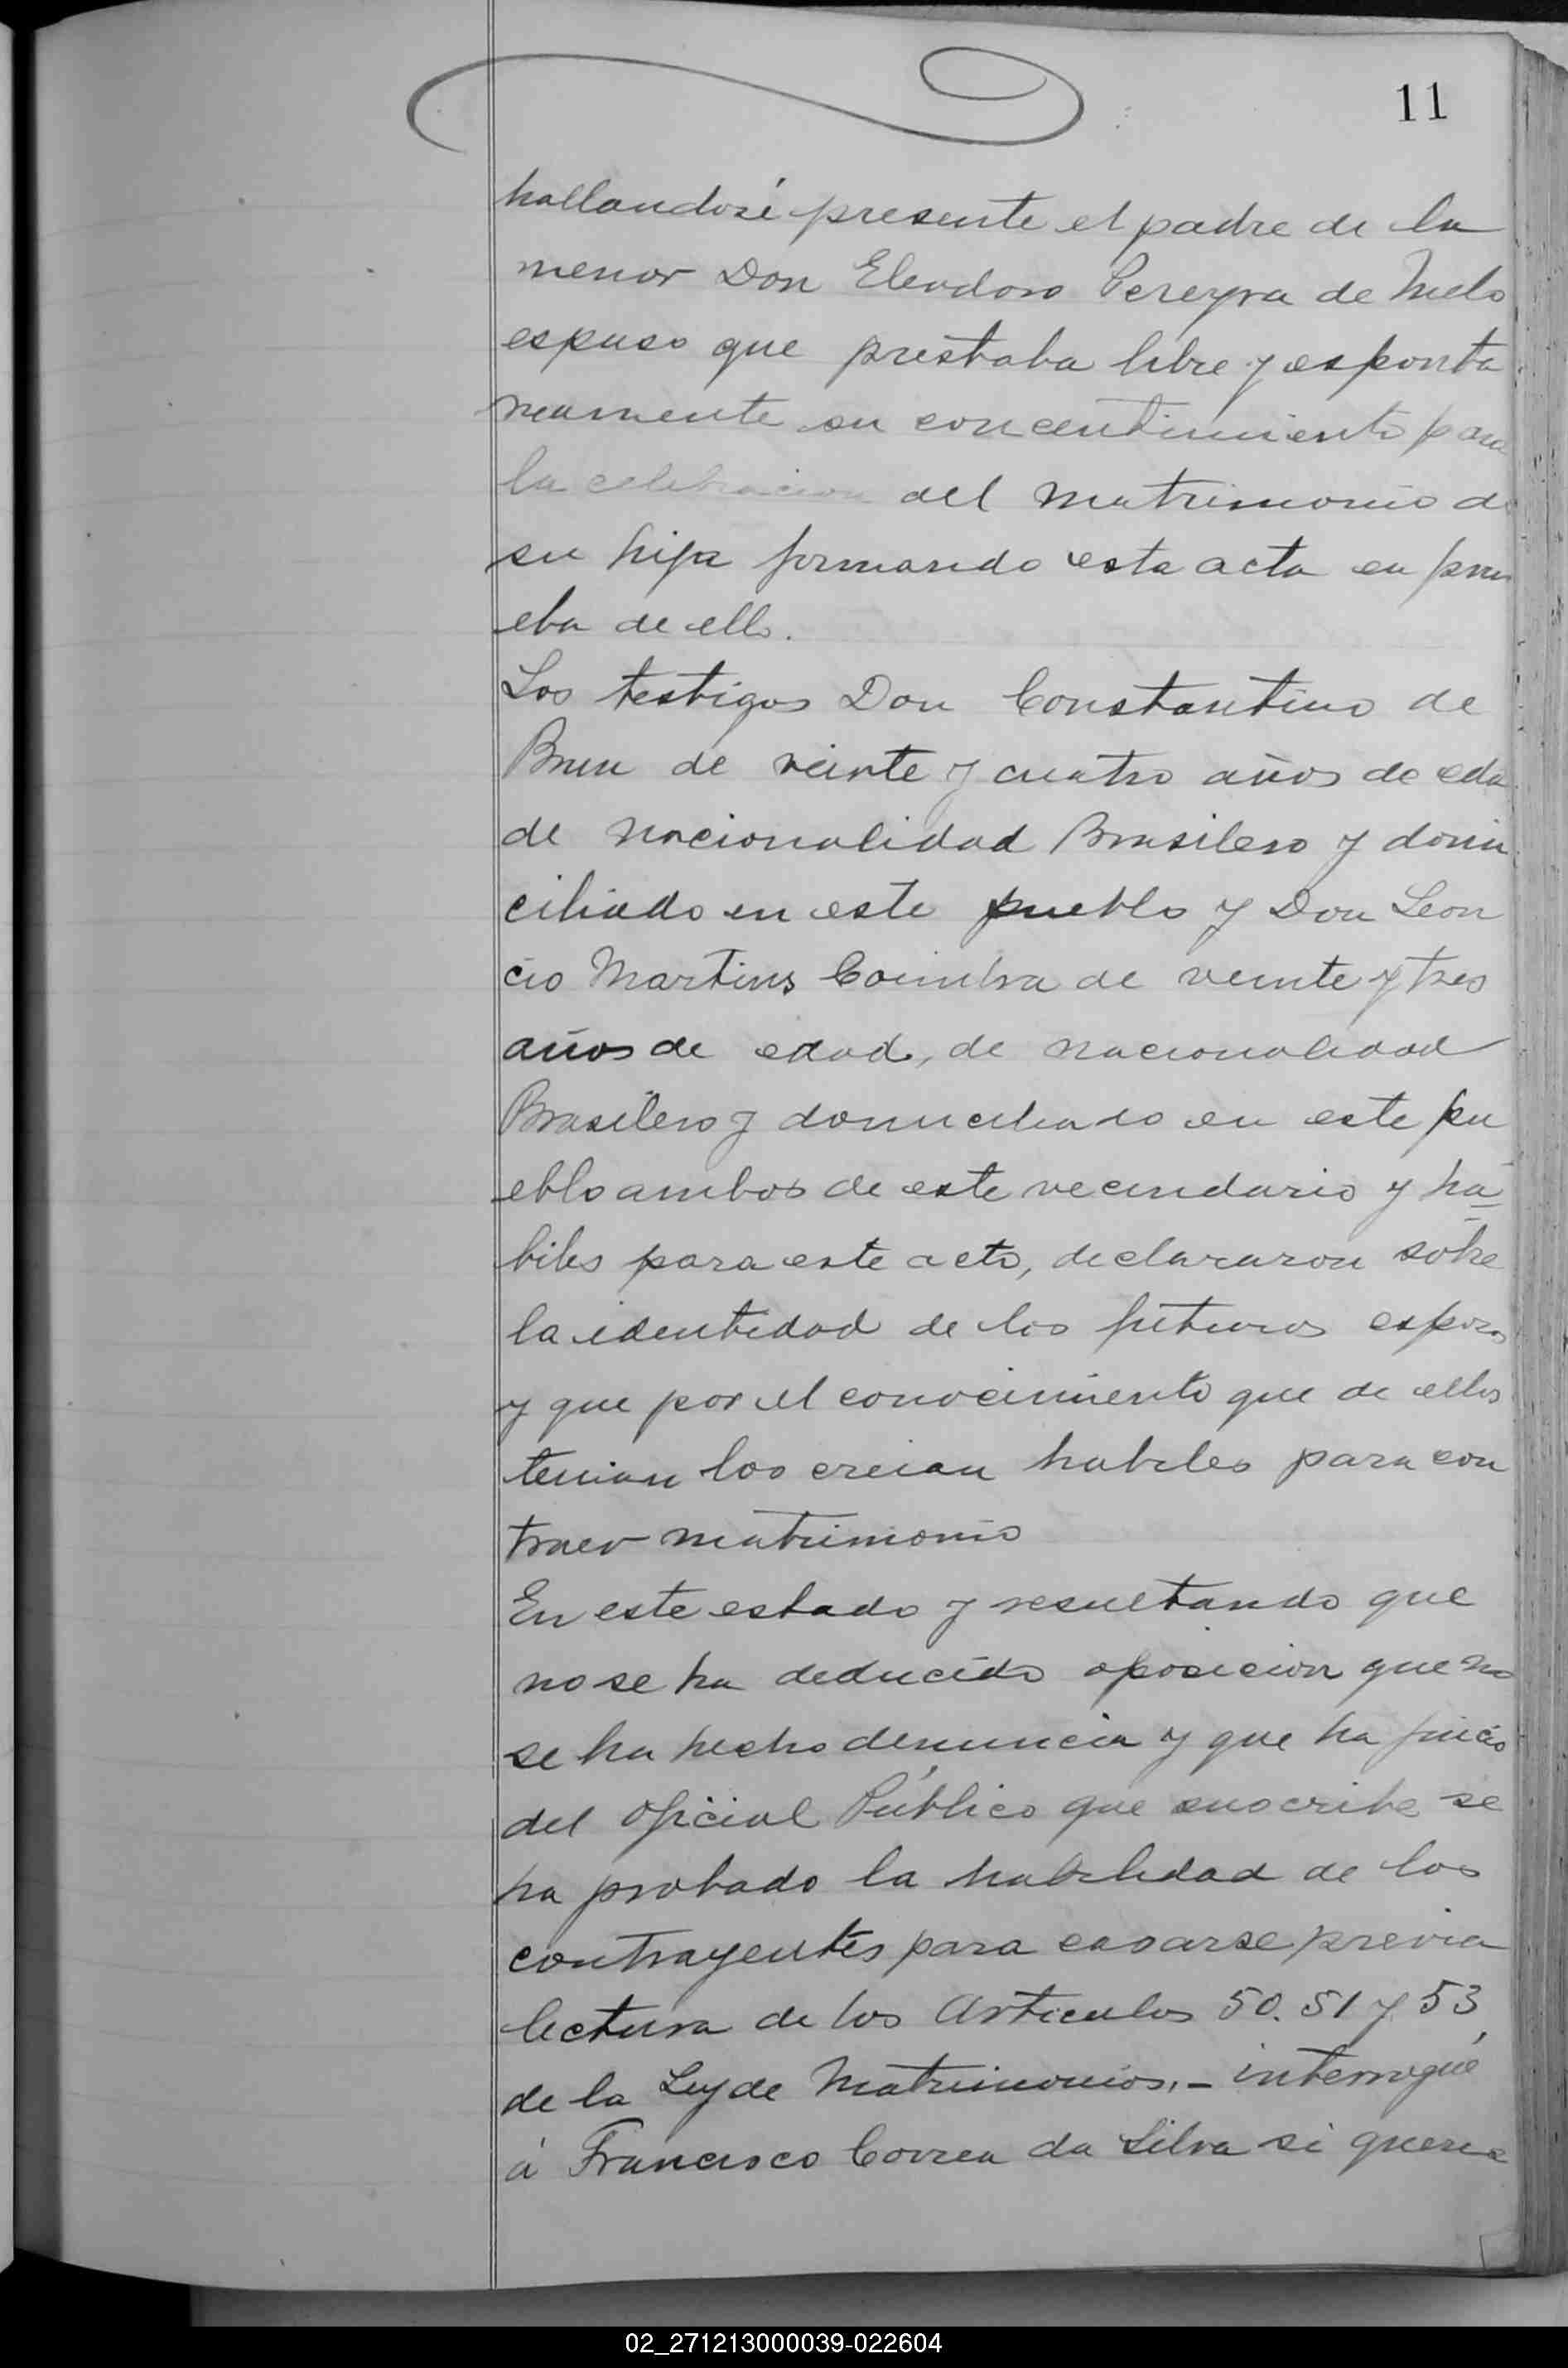 11
hallandosé presente el padre de la
menor Don Eleodoro Pereyra de Melo
espuso que prestaba libre y esponta
neamente su concentimiento para
la celebracion del matrimonio de
su hija formando esta acta en pru
eba de ello.
Los testigos Don Constantino de
de veinte y cuatro años de eda
de nacionalidad Brasilero y domi
ciliado en este pueblo y Don Leon
cio Martins Coimbra de veinte y tres
años de edad, de nacionalidad
Brasilero y domiciliado en este pu
eblo ambos de este vecindario y há
biles para este acto, declararon sobre
la identidad de los futuros esposos
y que por el conocimiento que de ellos
tenian los creian habiles para con
traer matrimonio
En este estado y resultando que
no se ha deducido oposicion que no
se ha hecho denuncia y que ha juicio
del Oficial Público que suscribe se
ha probado la habilidad de los
contrayentes para casarse previa
lectura de los Articulos 50. 51 y 53
de la Ley de Matrimonios, - interrogué
á Francisco Correa da Silva si queria
02_271213000039-022604